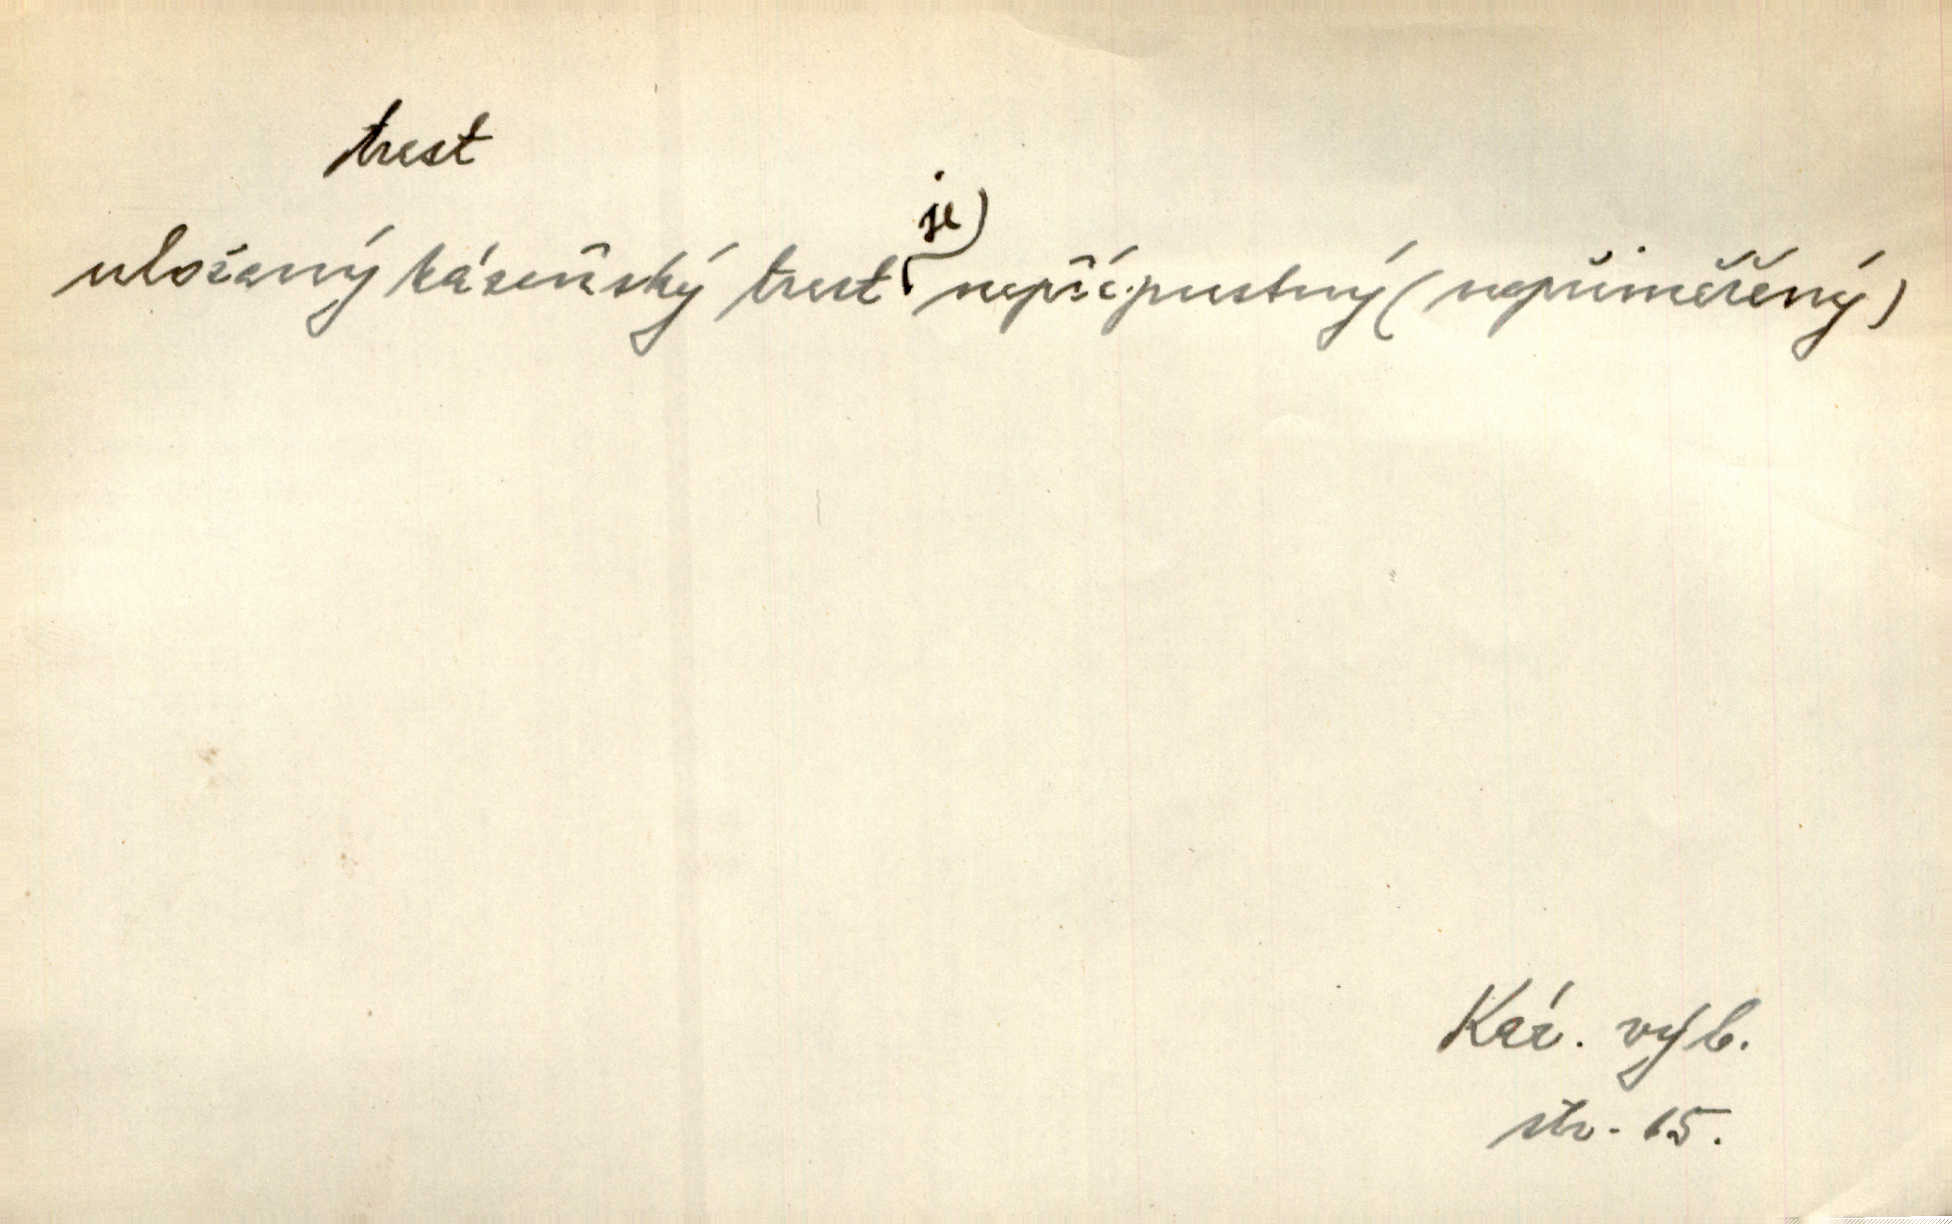 trest
uložený kázeňský trest je) nepřípustný (nepřiměřený)
Kár. výb.
str. 15.